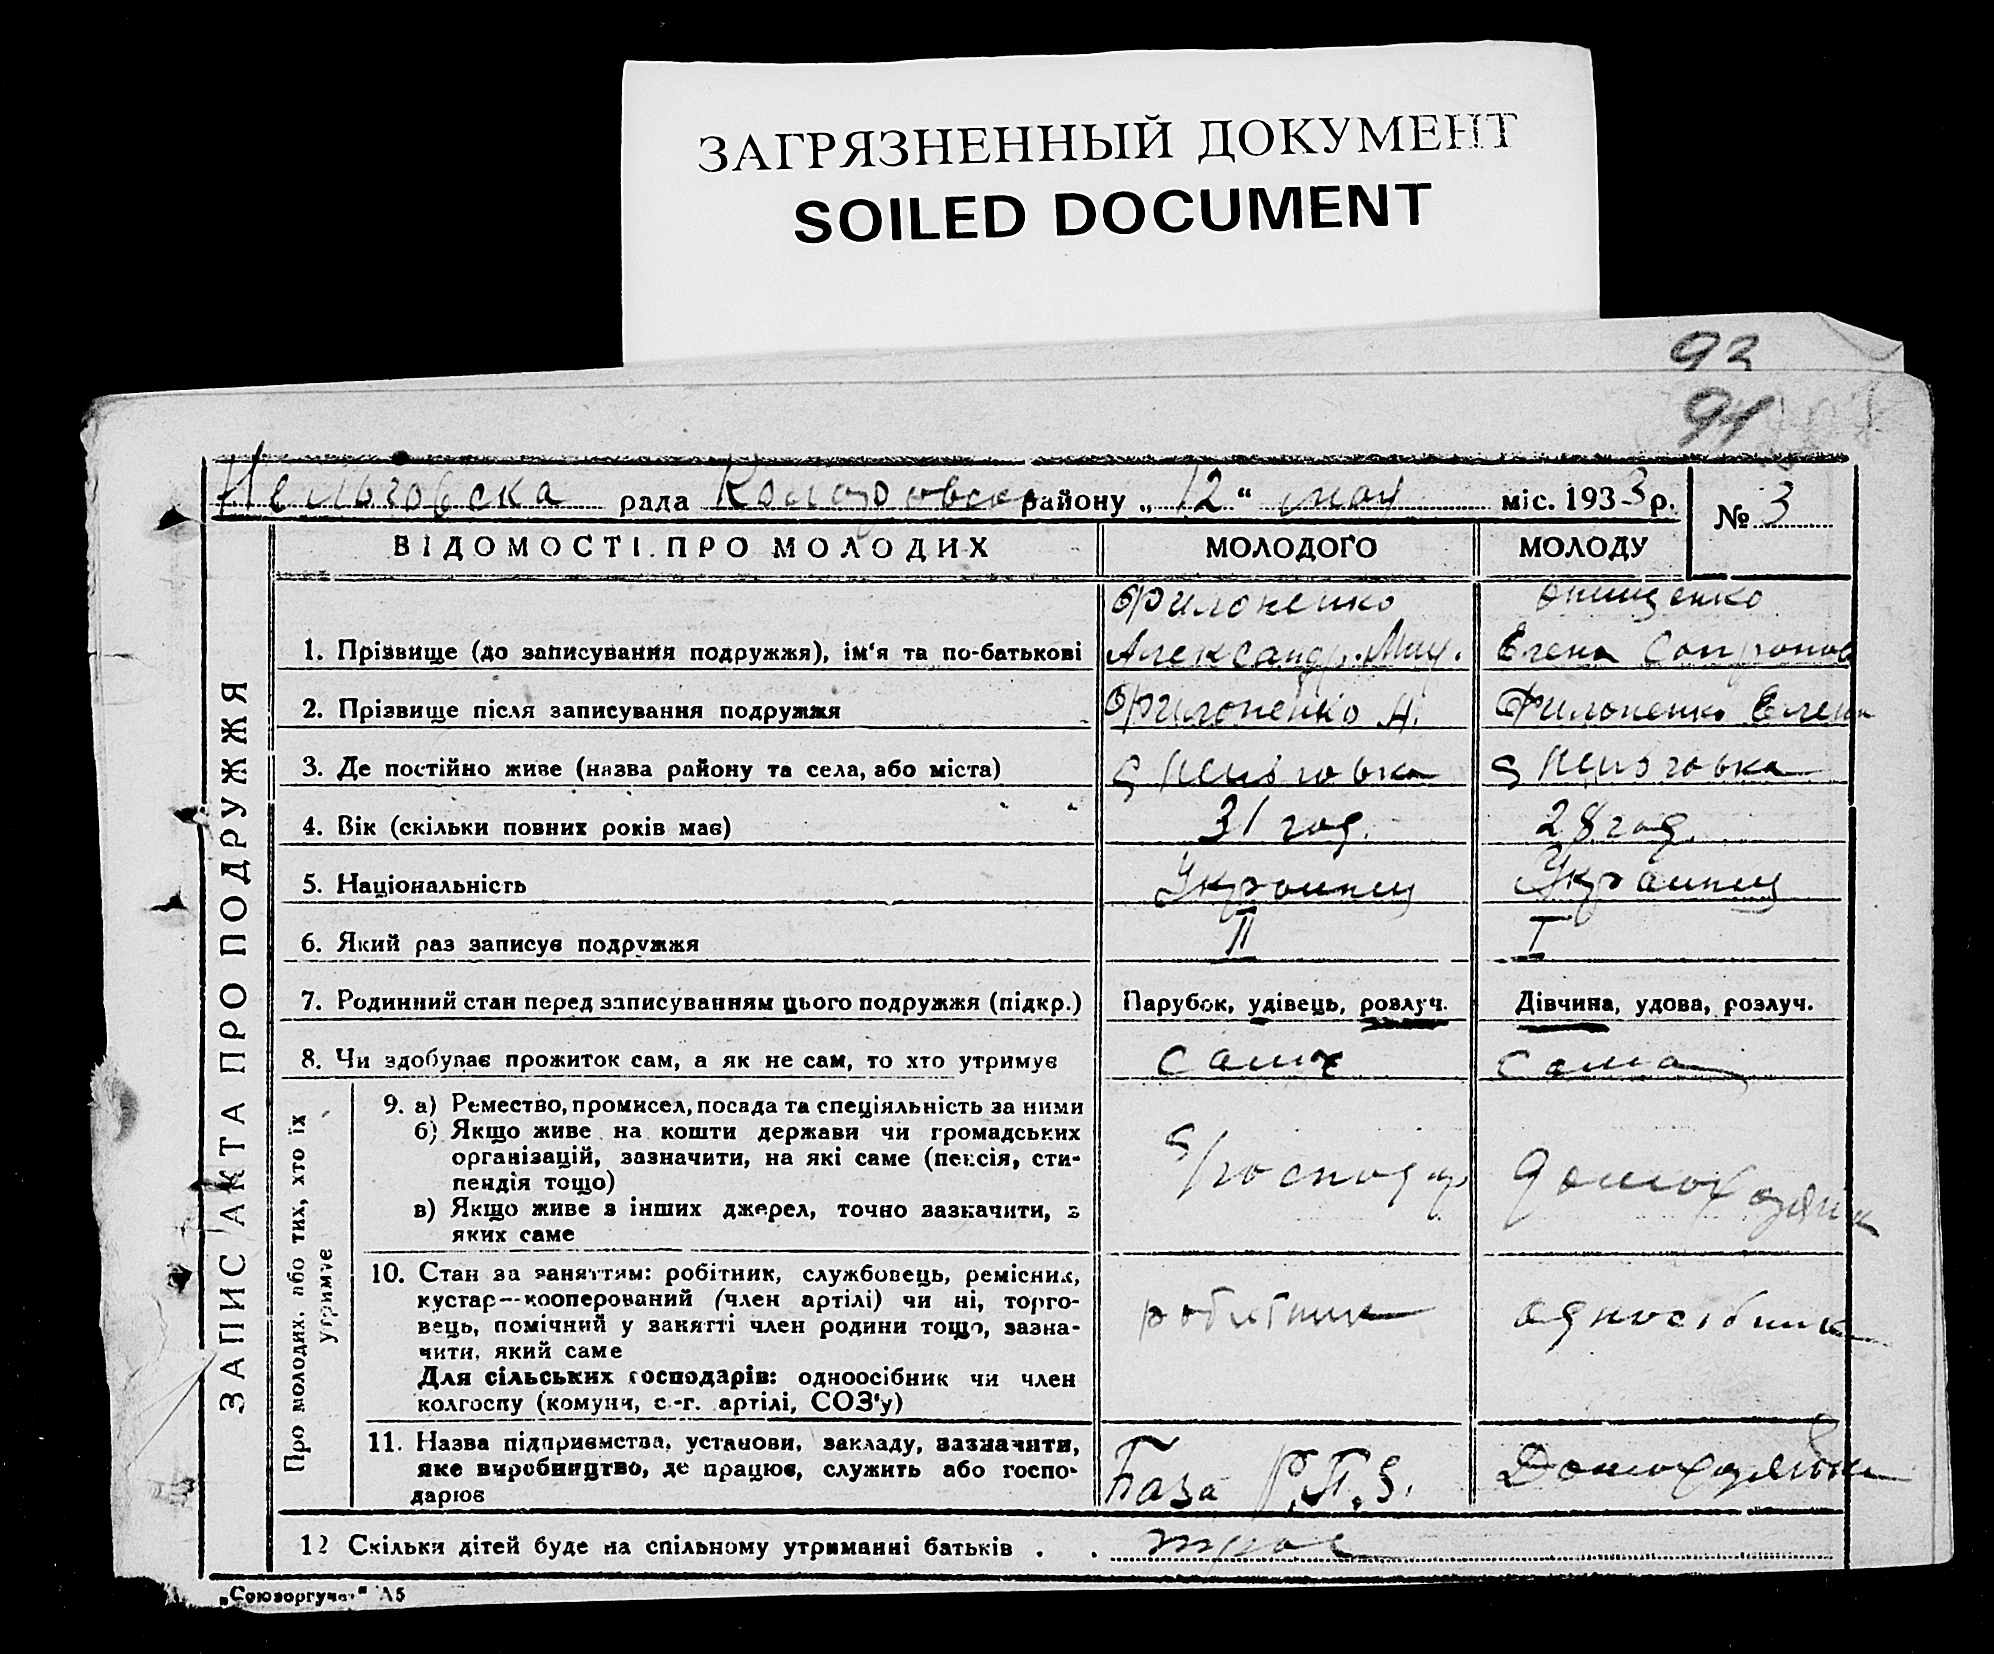 ЗАГРЯЗНЕННЫЙ ДОКУМЕНТ
SOILED DOCUMENT
92
91
рада района району „ 12 “ мая міс. 1933 р.
№ 3
ВІДОМОСТІ ПРО МОЛОДИХ
МОЛОДОГО
МОЛОДУ
ЗАПИС АКТА ПРО ПОДРУЖЖЯ
1. Прізвище (до записування подружжя), ім'я та по-батькові
Филоненко
Александр. Мих.
Онищенко
Елена Сопронов
2. Прізвище після записування подружжя
Филоненко А.
Филоненко Елена
3. Де постійно живе (назва району та села, або міста)
4. Вік (скільки повних років має)
31 год.
28 год.
5. Національність
Украинец
Украинец
6. Який раз записує подружжя
II
I
7. Родинний стан перед записуванням цього подружжя (підкр.)
Парубок, удівець, розлуч.
Дівчина, удова, розлуч.
8. Чи здобуває прожиток сам, а як не сам, то хто утримує
сама
Про молодих, або тих, хто їх
утримує
9. а) Ремество, промисел, посада та спеціяльність за ними
б) Якщо живе на кошти держави чи громадських
організацій, зазначити, на які саме (пенсія, сти-
пендія тощо)
в) Якщо живе з інших джерел, точно зазначити, з
яких саме
10. Стан за заняттям: робітник, службовець, ремісник,
кустар—кооперований (член артілі) чи ні, торго-
вець, помічний у занятті член родини тощо, зазна-
чити, який саме
Для сільських господарів: одноосібник чи член
колгоспу (комуни, с.-г. артілі, СОЗ'у)
робітник
односібник
11. Назва підприємства, установи, закладу, зазначити,
яке виробництво, де працює, служить або госпо-
дарює
База
12 Скільки дітей буде на спільному утриманні батьків . .
трое
„Союзоргучет“ А5